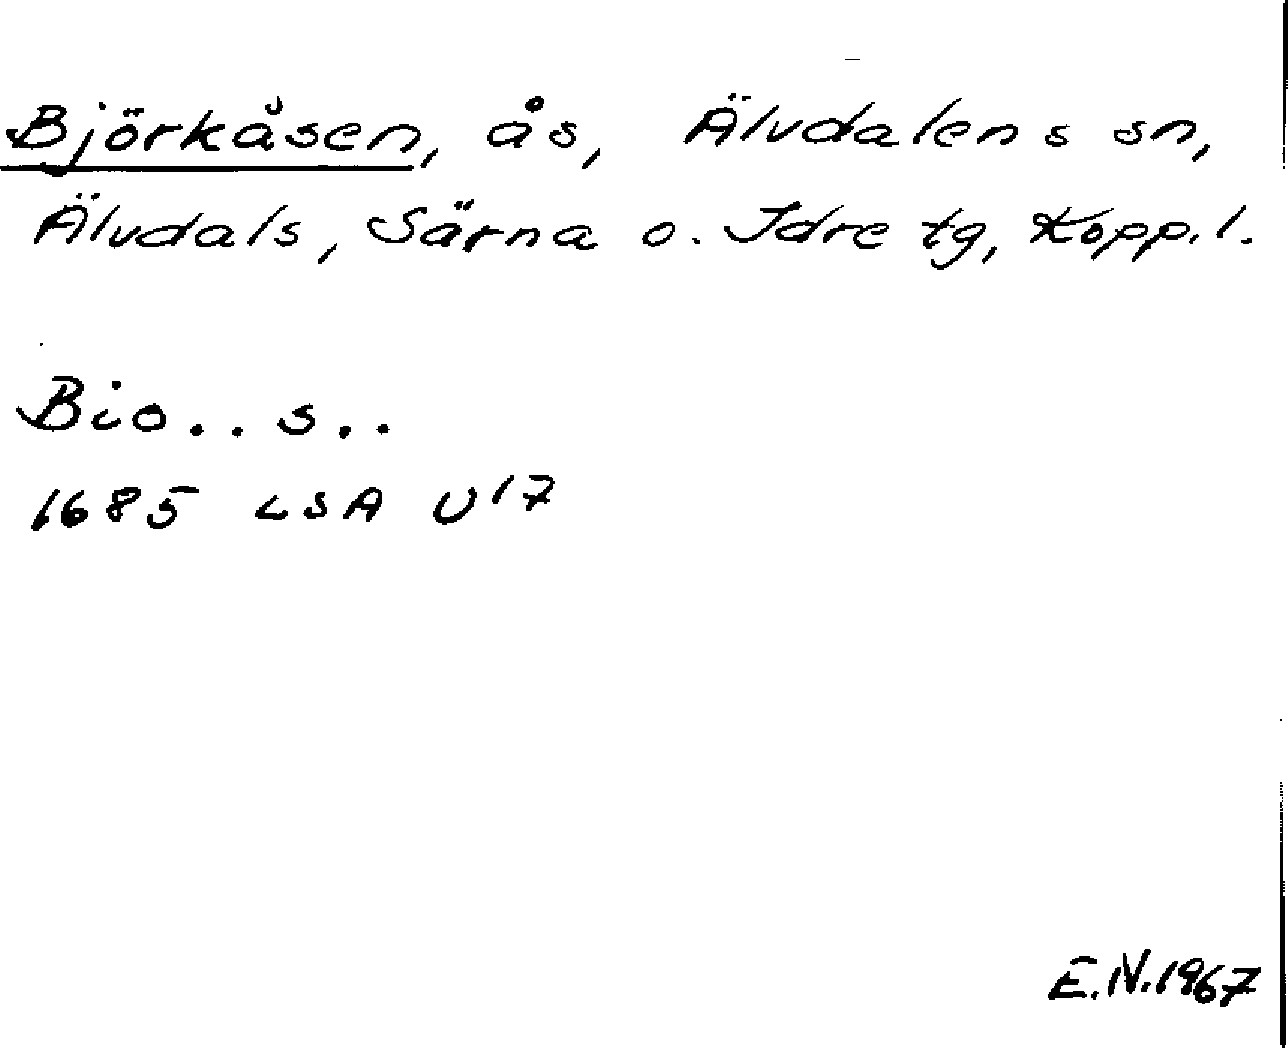 Björkåsen, ås, Älvdalens sn,
Älvdals, Särna o. Idre tg, Kopp.l.
Bio..s..
1685 LSA U17
E.N.1967